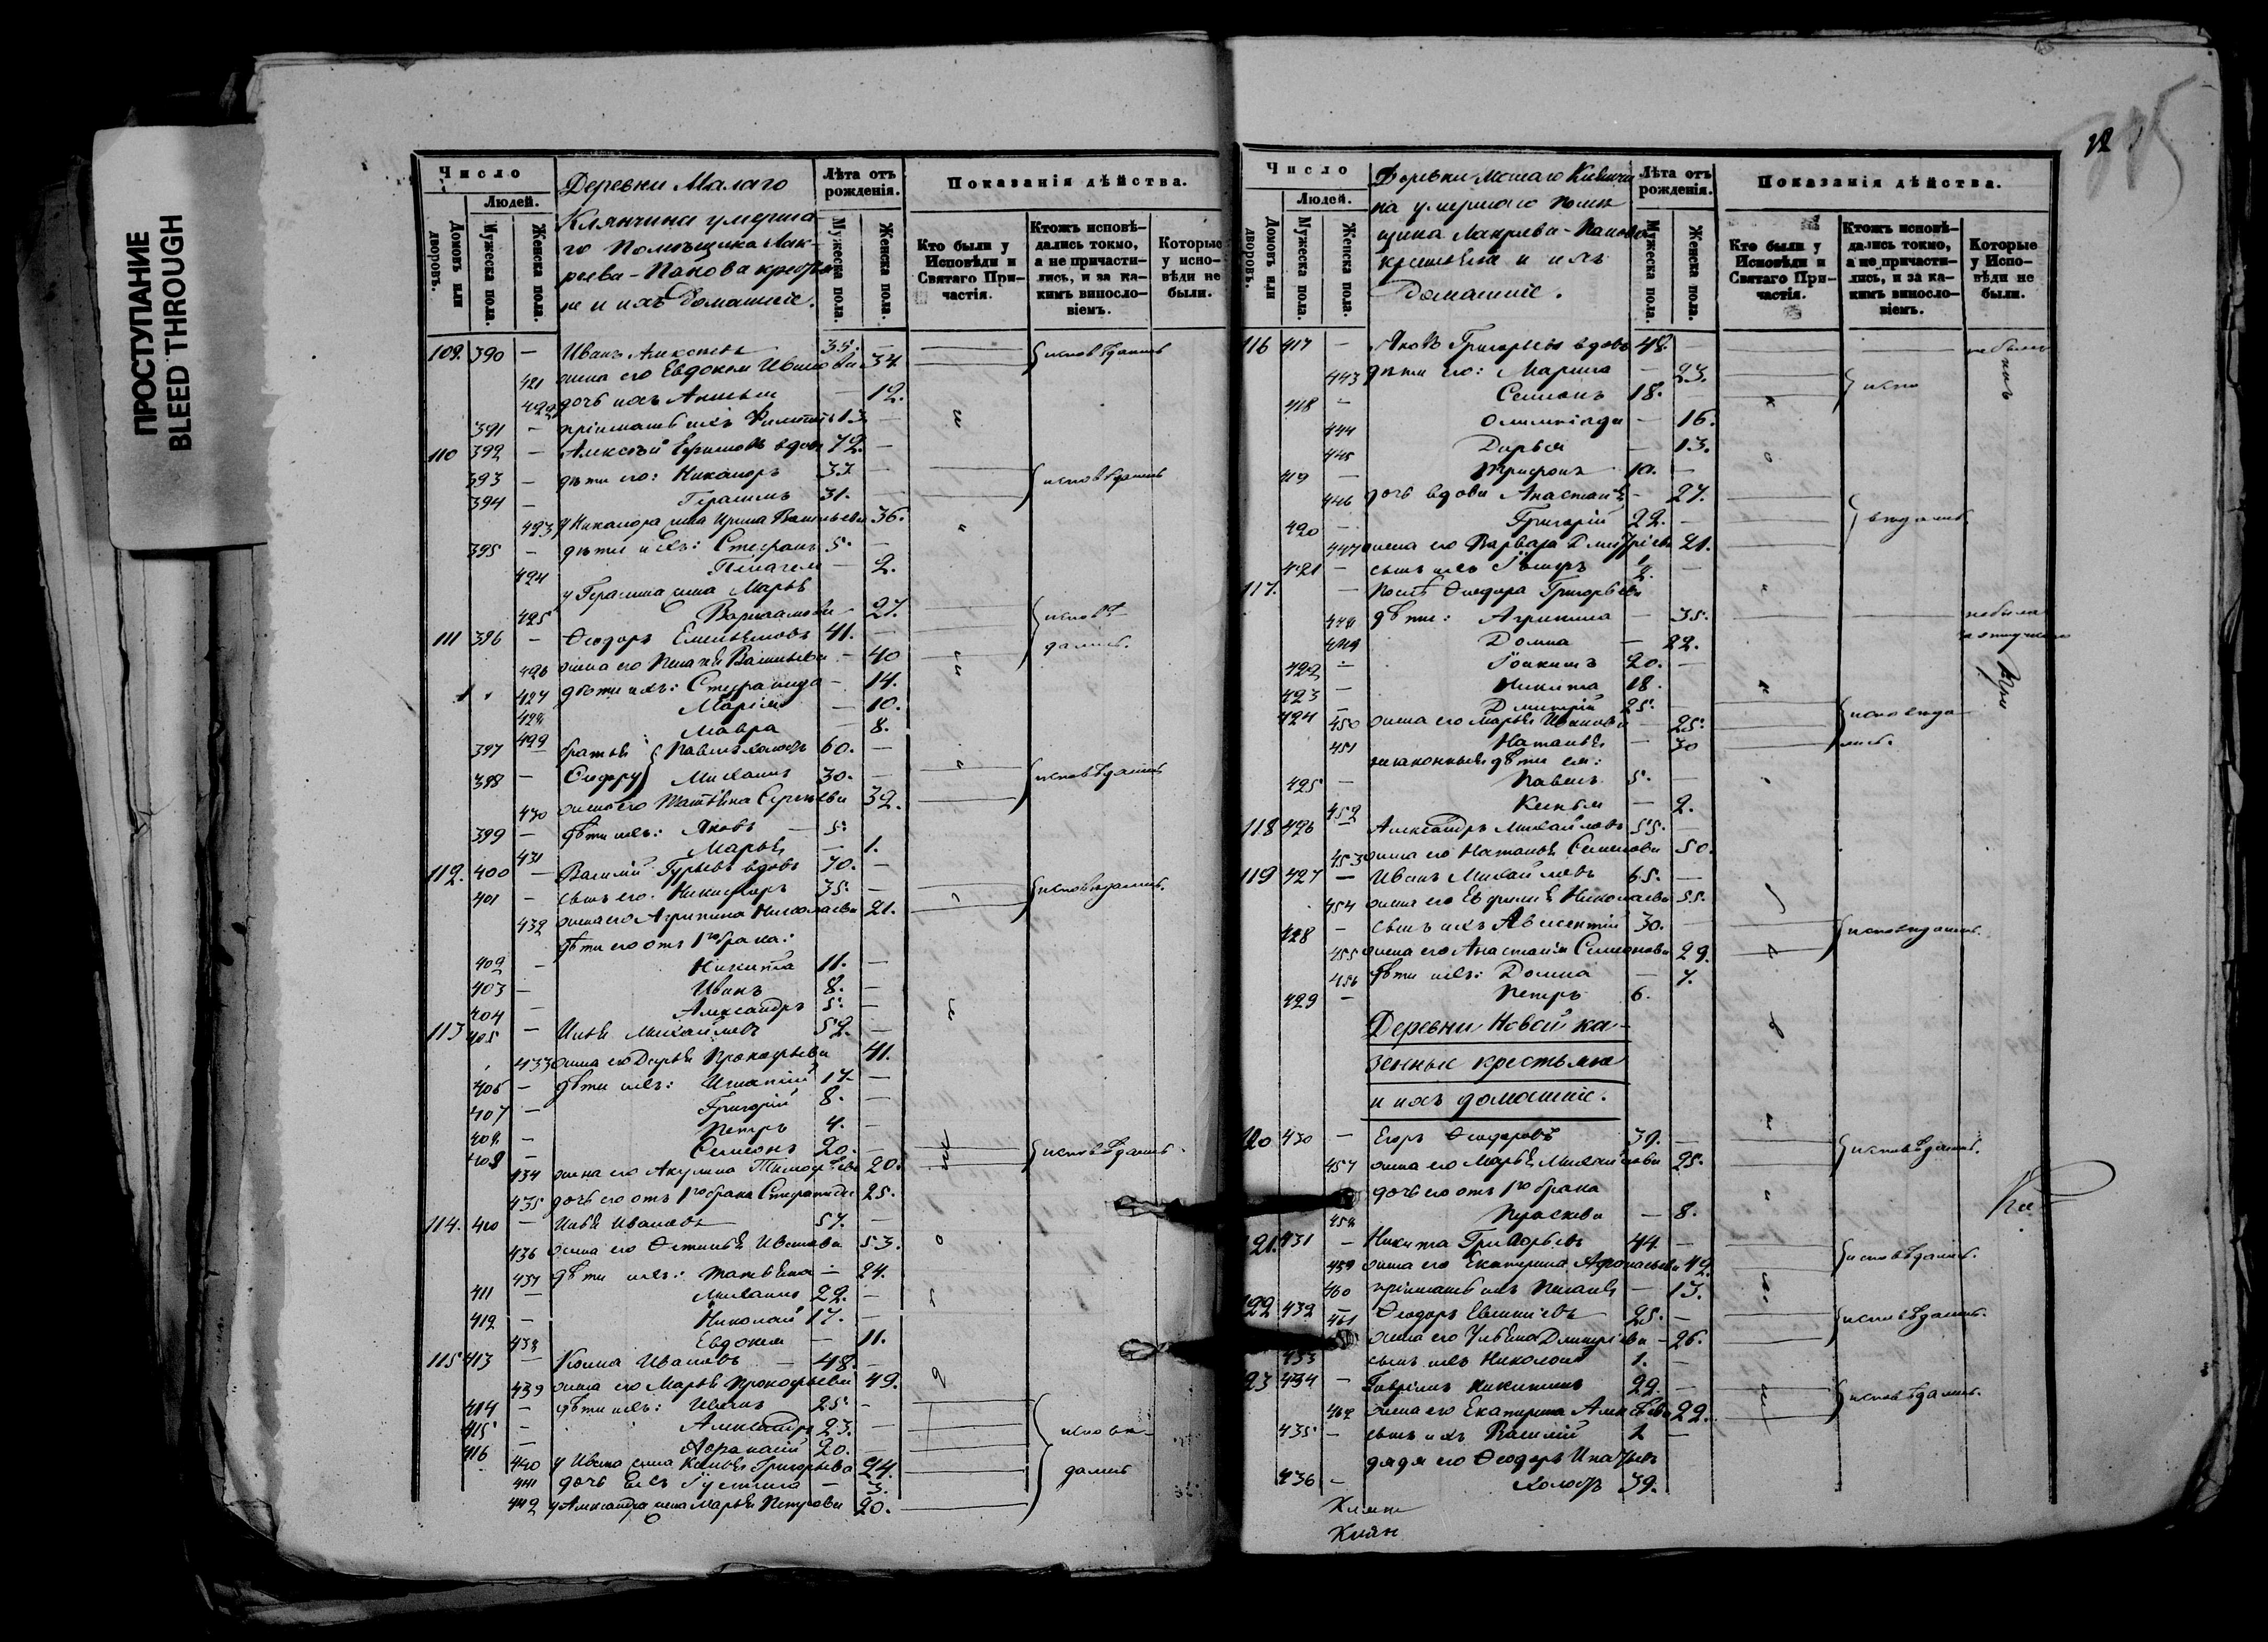 ПРОСТУПАНИЕ
BLEED THROUGH
Число
Людей.
Домовъ или дворовъ.
Мужеска пола.
Женска пола.
Деревни Малаго
Клянчина умерша-
го Помѣщика Лак-
рева-Панова кресть
не и ихъ домашніе.
Лѣта отъ рожденія.
Мужеска пола.
Женска пола.
Показанія дѣйства.
Кто были у Исповѣди и Святаго При-частія.
Ктожъ исповѣ-дались токмо, а не причасти-лись, и за ка-кимъ винос­ло-віемъ.
Которые у испо-вѣди не были.
109. 390 — Иванъ Алексѣевъ 35. — исповѣдались
421 жена его Евдокия Иванова 34.
422 дочь ихъ — 12.
391 — пріимышъ ихъ 13 —
110 392 — Алексѣй Ефимовъ вдовъ 72. —
393 — дѣти его: Никаноръ 37. — исповѣдались
394 — Герасимъ 31. —
423 у Никанора жена Ирина Васильева 36.
395 — дѣти ихъ: Стефанъ 5. —
424 Пелагея — 2.
у Герасима жена Марья
425 Варлаамова 27. исповѣ-
111 396 — Ѳеодоръ Емельяновъ 41. — дались.
426 жена его Пелагея Васильева — 40
427 дѣти ихъ: Стефанида — 14.
428 Марія — 10.
429 Мавра — 8.
397 братья Павелъ холостъ 60. —
398 — Ѳедору Михаилъ 30. — исповѣдались
430 жена его Татьяна Сергѣева 32.
399 — дѣти ихъ: Яковъ — 5.
431 Марья — 1.
112. 400 — Василій Гурьевъ вдовъ 70. —
401 — сынъ его Никифоръ 35. — исповѣдались.
432 жена его Агрипина Николаева 21.
дѣти его отъ 1го брака:
402 — Никита 11. —
403 — Иванъ 8. —
404 — Александръ 5. —
113 405 — Илья Михайловъ 52. —
433 жена его Дарья Прокофьева 41.
406 — дѣти ихъ: Игнатій 17. —
407 — Григорій 8. —
408 — Петръ 4. —
409 — Семенъ 20. — исповѣдались.
434 жена его Акулина Тимофѣева 20.
435 дочь его отъ 1го брака Стефанида 25.
114. 410 — Илья Ивановъ 57. —
436 жена его Ѳетинья Иванова 53.
437 дѣти ихъ: Татьяна — 24.
411 — Михаилъ 22. —
412 — Николай 17. —
438 Евдокия — 11.
115 413 — Козма Ивановъ — 48. —
439 жена его Марья Прокофьева 49.
414 — дѣти ихъ: Иванъ 25. —
415 — Александръ 23. — исповѣ-
416 — Афанасій 20. —
440 у Ивана жена Ксенья Григорьева 24. дались
441 дочь ихъ Густина — 3.
442 у Александра жена Марья Петрова 20.
12
Число
Людей.
Домовъ или дворовъ.
Мужеска пола.
Женска пола.
Деревни Малаго Клянчи
на умершаго помѣ
щика Лакрева-Панова
крестьяне и ихъ
Домашніе.
Лѣта отъ рожденія.
Мужеска пола.
Женска пола.
Показанія дѣйства.
Кто были у Исповѣди и Святаго При-частія.
Ктожъ исповѣ-дались токмо, а не причасти-лись, и за ка-кимъ винос­ло-віемъ.
Которые у Испо-вѣди не были.
116 417 — Яковъ Григорьевъ вдовъ 48. — не былъ
443 дѣти его: Марина — 23.
418 — Семенъ 18. — испо
444 Олимпіада — 16.
445 Дарья — 13.
419 — Трифонъ 10. —
446 дочь вдова Анастасія — 27.
420 — Григорій 22. — вѣдались.
447 жена его Варвара Дмитріева 21.
421 — сынъ ихъ Петръ 2. —
117. — Послѣ Ѳеодора Григорьева
448 дѣти: Агрипина — 35. не была
449 Домна — 22.
422 — Іоакимъ 20. —
423 — Никита 18.
424 — Дмитрій 25.
450 жена его Марья Иванова — 25. исповѣда-
451 Наталья — 30 лись.
незаконныя дѣти ея:
425 — Павелъ 5. —
452 Ксенья — 2.
118 426 — Александръ Михайловъ 55. —
453 жена его Наталья Семенова 50.
119 427 — Иванъ Михайловъ 65. —
454 жена его Евфимія Николаева 55.
428 — сынъ ихъ Авксентій 30. — исповѣдались.
455 жена его Анастасія Семенова 29.
456 дѣти ихъ: Домна — 7.
429 — Петръ 6.
Деревни Новой ка-
зенные крестьяне
и ихъ домашніе.
120 430 — Егоръ Ѳеодоровъ 39. — исповѣдались.
457 жена его Марья Михайлова 25.
дочь его отъ 1го брака
458 Прасковья — 8.
121. 431 — Никита Григорьевъ 44 — исповѣдались.
459 жена его Екатерина Афонасьева 42.
460 пріимышъ ихъ Пелагея — 13.
122 432 — Ѳеодоръ Евсигніевъ 25. — исповѣдались.
461 жена его Ульяна Дмитріева — 26.
433 сынъ ихъ Николай 1. —
123 434 — Гавріилъ Никитинъ 22. — исповѣдались.
462 жена его Екатерина Алексѣева 22.
435 — сынъ ихъ Василій 2 —
дядя его Ѳеодоръ Игнатьевъ
436 — холостъ 39.
Клян
Клян